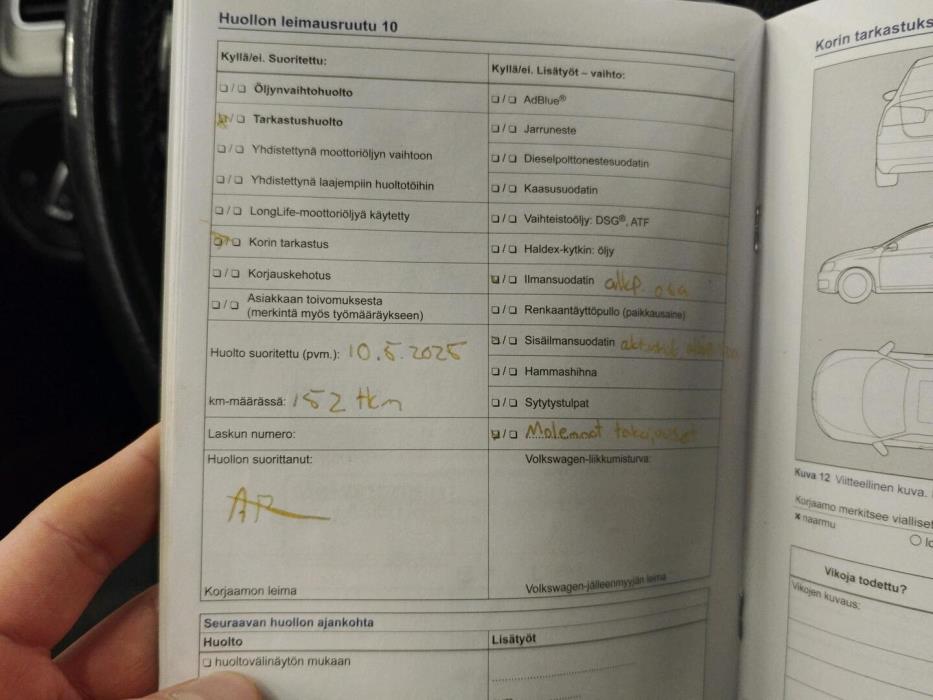 Huollon leimausruutu 10
Kyllä/ei. Suoritettu:
☐/☐ Öljynvaihtohuolto
☒/☐ Tarkastushuolto
☐/☐ Yhdistettynä moottoriöljyn vaihtoon
☐/☐ Yhdistettynä laajempiin huoltotöihin
☐/☐ LongLife-moottoriöljyä käytetty
☒/☐ Korin tarkastus
☐/☐ Korjauskehotus
☐/☐ Asiakkaan toivomuksesta
(merkintä myös työmääräykseen)
Huolto suoritettu (pvm.): 10.5.2025
km-määrässä: 152 tkm
Laskun numero:
Huollon suorittanut:
AR
Korjaamon leima
Kyllä/ei. Lisätyöt – vaihto:
☐/☐ AdBlue®
☐/☐ Jarruneste
☐/☐ Dieselpolttonestesuodatin
☐/☐ Kaasusuodatin
☐/☐ Vaihteistoöljy: DSG®, ATF
☐/☐ Haldex-kytkin: öljy
☒/☐ Ilmansuodatin alkp. osa
☐/☐ Renkaantäyttöpullo (paikkausaine)
☒/☐ Sisäilmansuodatin
☐/☐ Hammashihna
☐/☐ Sytytystulpat
☒/☐ Molemmat takajouset
Volkswagen-liikkumisturva:
Volkswagen-jälleenmyyjän leima
Seuraavan huollon ajankohta
Huolto
Lisätyöt
☐ huoltovälinäytön mukaan
Korin tarkastuks
Kuva 12 Viitteellinen kuva.
Korjaamo merkitsee vialliset
x naarmu
Vikoja todettu?
Vikojen kuvaus: